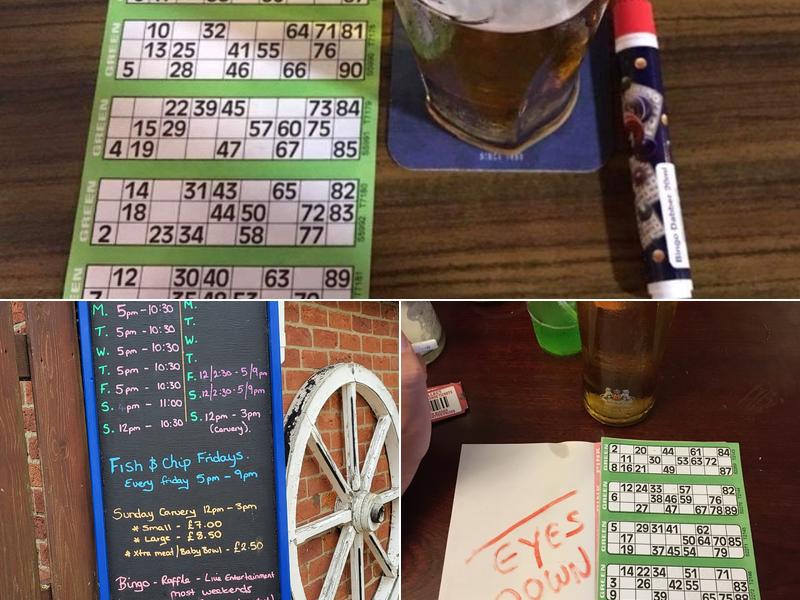 GREEN
10 32 64 71 81
13 25 41 55 76
5 28 46 66 90
S5990 T7178
GREEN
22 39 45 73 84
15 29 57 60 75
4 19 47 67 85
S5991 T7179
GREEN
14 31 43 65 82
18 44 50 72 83
2 23 34 58 77
S5992 T7180
12 30 40 63 89
T7181
Bingo Dabber 20ml
M. 5pm - 10:30
T. 5pm - 10:30
W. 5pm - 10:30
T. 5pm - 10:30
F. 5pm - 10:30
S. 4pm - 11:00
S. 12pm - 10:30
M.
T.
W.
T.
F. 12/2:30 - 5/9pm
S. 12/2:30 - 5/9pm
S. 12pm - 3pm
(Carvery).
Fish & Chip Fridays.
Every friday 5pm - 9pm
Sunday Carvery 12pm - 3pm
* Small - £7.00
* Large - £8.50
* Xtra meat/Baby Bowl - £2.50
Bingo - Raffle - Live Entertainment
most weekends
EYES
DOWN
PINK
2 20 44 61 84
11 30 53 63 72
8 16 21 87
GREEN
12 24 33 57 82
6 38 46 59 76
27 47 67 78 89
GREEN
5 29 31 41 62
17 50 64 70 85
19 37 45 54 79
GREEN
14 22 34 51 71
3 26 42 55 83